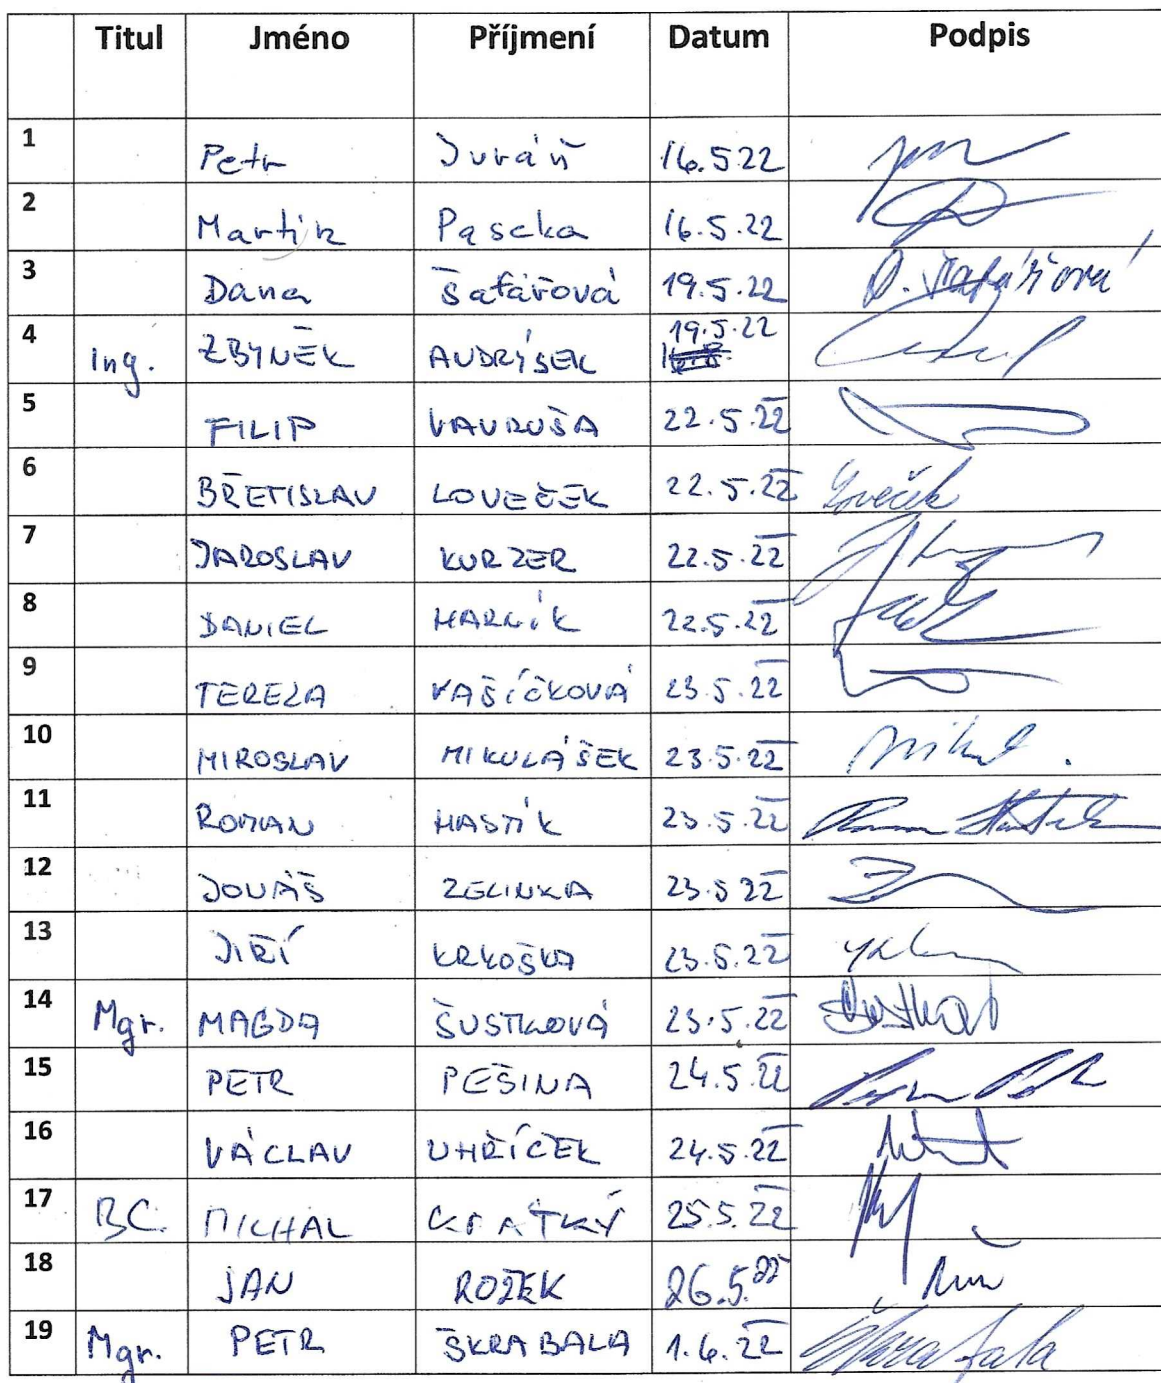 Titul Jméno Příjmení Datum Podpis
1 Petr Juráň 16.5.22
2 Martin Paseka 16.5.22
3 Dana Šafářová 19.5.22 D. Šafářová
4 Ing. ZBYNĚK ANDRÝSEK 19.5.22
5 FILIP VAVRUŠA 22.5.22
6 BŘETISLAV LOVEČEK 22.5.22 Loveček
7 JAROSLAV KURZER 22.5.22
8 DANIEL HARNÍK 22.5.22
9 TEREZA VAŠÍČKOVÁ 23.5.22
10 MIROSLAV MIKULÁŠEK 23.5.22
11 ROMAN HASTÍK 23.5.22
12 JONÁŠ ZELINKA 23.5 22
13 JIŘÍ KRKOŠKA 23.5.22
14 Mgr. MAGDA ŠUSTKOVÁ 23.5.22
15 PETR PEŠINA 24.5.22
16 VÁCLAV UHŘÍČEK 24.5.22
17 BC. MICHAL KRATKÝ 25.5.22
18 JAN ROŽEK 26.5.22
19 Mgr. PETR ŠKRABALA 1.6.22